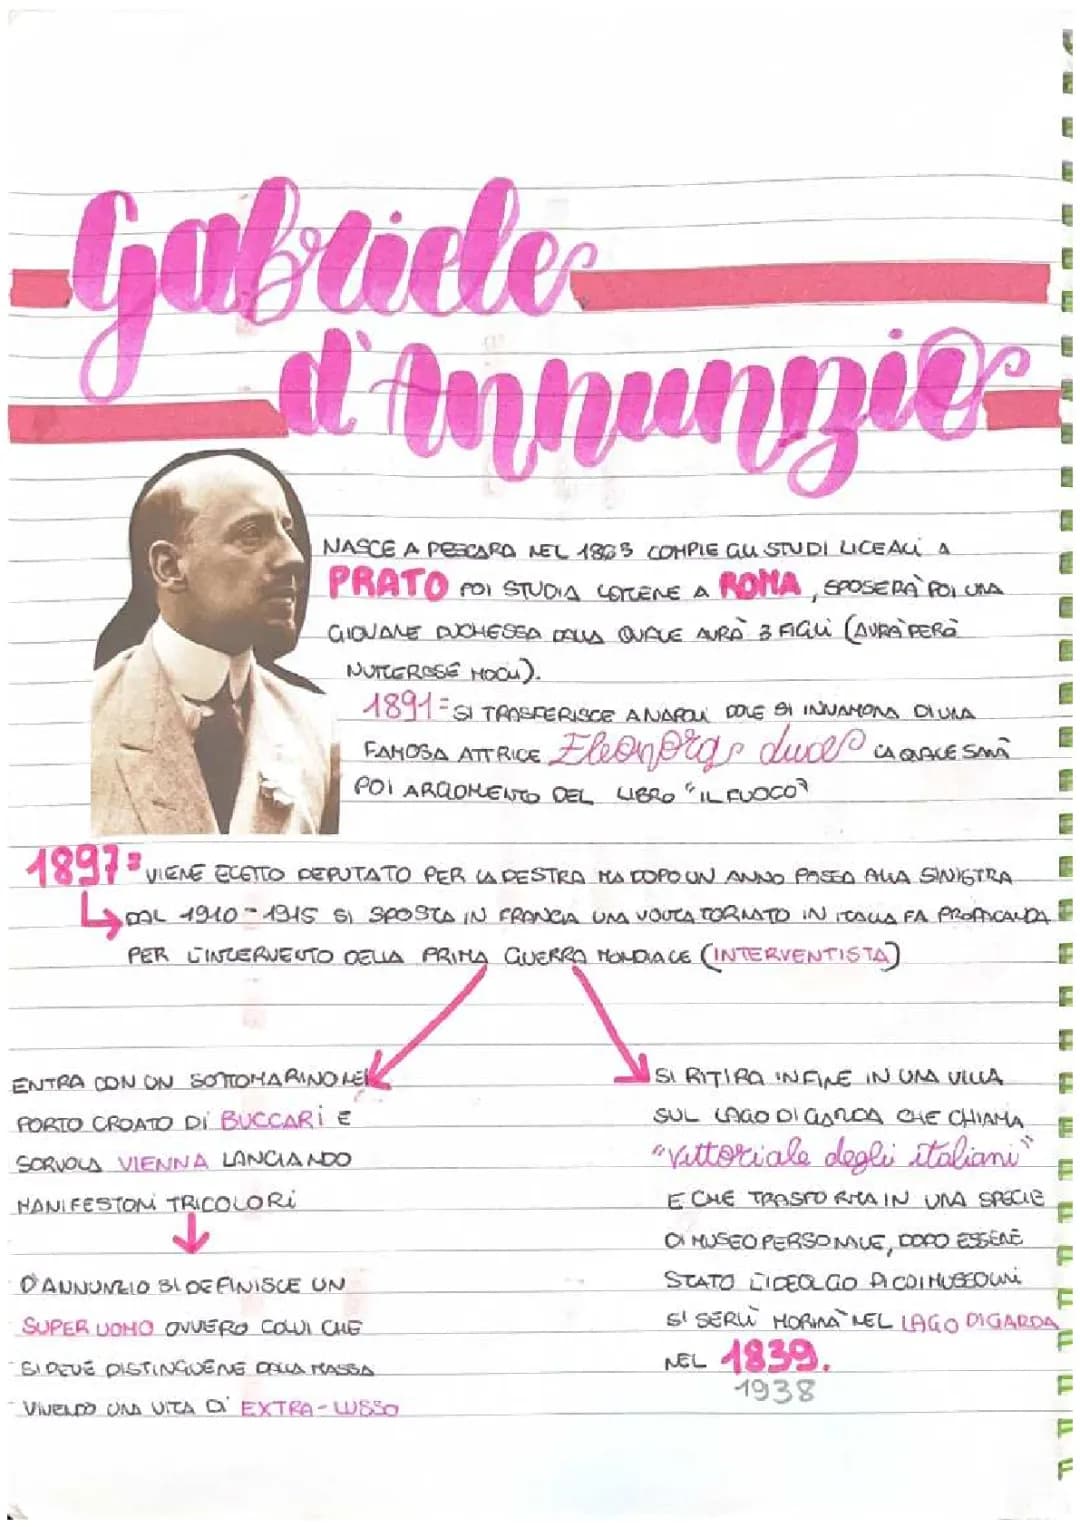 Gabriele
d'Annunzio
NASCE A PESCARA NEL 1863 COMPIE GLI STUDI LICEALI A
PRATO POI STUDIA LETTERE A ROMA, SPOSERÀ POI UNA
GIOVANE DUCHESSA DALLA QUALE AVRÀ 3 FIGLI (AVRÀ PERÒ
NUMEROSE MOGLI).
1891= SI TRASFERISCE A NAPOLI DOVE SI INNAMORA DI UNA
FAMOSA ATTRICE Eleonora duce LA QUALE SARÀ
POI ARGOMENTO DEL LIBRO "IL FUOCO"
1897= VIENE ELETTO DEPUTATO PER LA DESTRA MA DOPO UN ANNO PASSA ALLA SINISTRA
DAL 1910-1915 SI SPOSTA IN FRANCIA UNA VOLTA TORNATO IN ITALIA FA PROPAGANDA
PER L'INTERVENTO DELLA PRIMA GUERRA MONDIALE (INTERVENTISTA)
ENTRA CON UN SOTTOMARINO NEL
PORTO CROATO DI BUCCARI E
SORVOLA VIENNA LANCIANDO
MANIFESTONI TRICOLORI
D'ANNUNZIO SI DEFINISCE UN
SUPER UOMO OVVERO COLUI CHE
SI DEVE DISTINGUERE DALLA MASSA
VIVENDO UNA VITA DI EXTRA-LUSSO
SI RITIRA INFINE IN UNA VILLA
SUL LAGO DI GARDA CHE CHIAMA
"Vittoriale degli italiani"
E CHE TRASFORMA IN UNA SPECIE
DI MUSEO PERSONALE, DOPO ESSERE
STATO L'IDEOLOGO DI MUSSOLINI
SI SERLÌ MORIRÀ NEL LAGO DI GARDA
NEL 1839.
1938